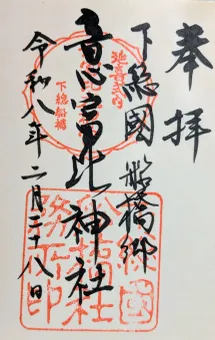 奉拝
下總國 船橋郷
意富比神社
令和八年二月二十八日
延喜式内
下總船橋